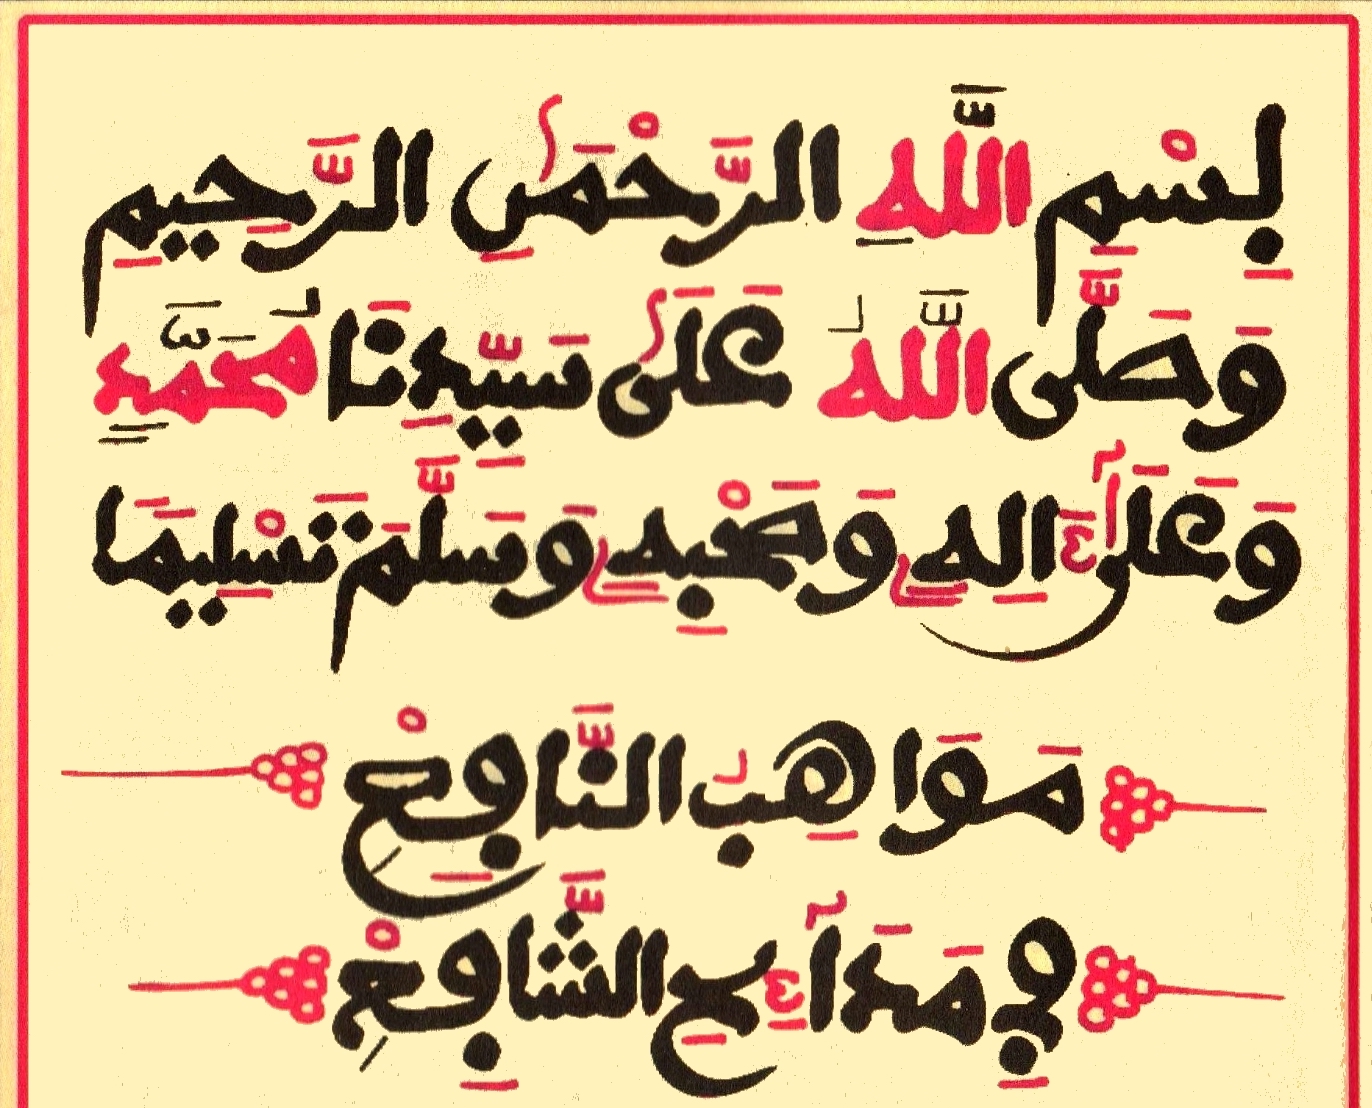 بِسْمِ اللَّهِ الرَّحْمَٰنِ الرَّحِيمِ
وَصَلَّى اللَّهُ عَلَىٰ سَيِّدِنَا مُحَمَّدٍ
وَعَلَىٰٓ ءَالِهِۦ وَصَحْبِهِۦ وَسَلَّمَ تَسْلِيمَا
مَوَاهِبُ النَّافِعْ
فِي مَدَآئِحِ الشَّافِعْ